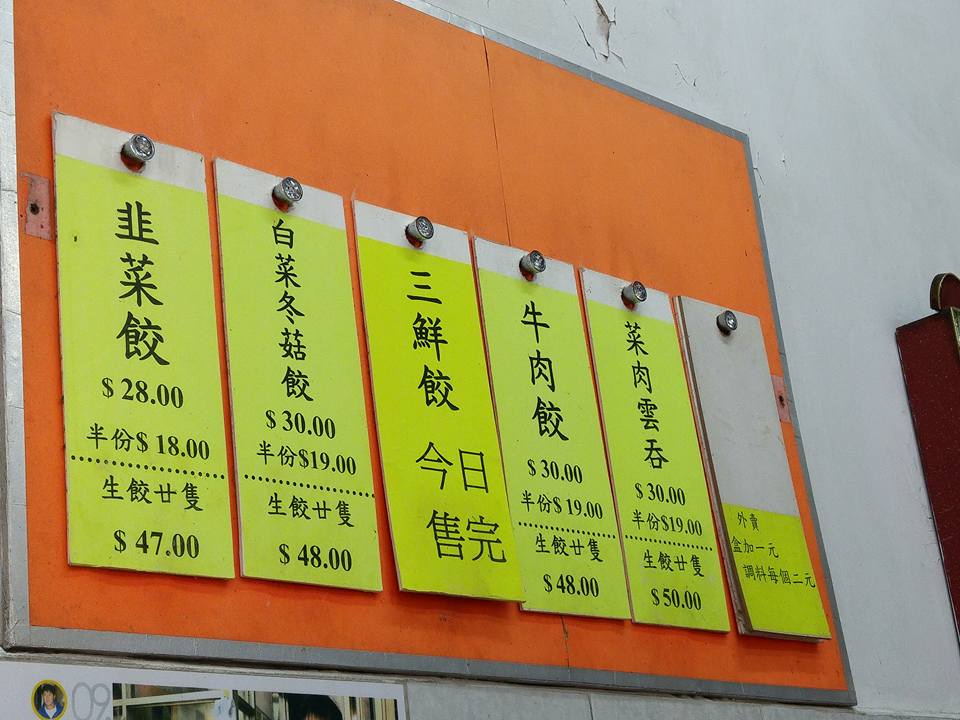 韭菜餃
$28.00
半份$18.00
生餃廿隻
$47.00
白菜冬菇餃
$30.00
半份$19.00
生餃廿隻
$48.00
三鮮餃
今日
售完
牛肉餃
$30.00
半份$19.00
生餃廿隻
$48.00
菜肉雲吞
$30.00
半份$19.00
生餃廿隻
$50.00
外賣
盒加一元
調料每個二元
09